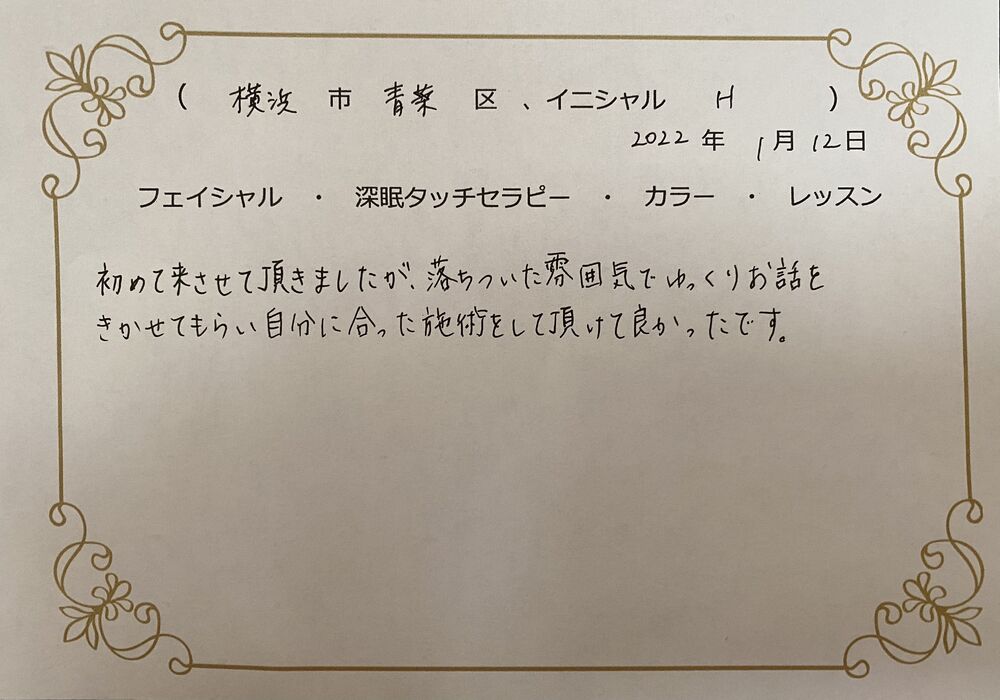 （ 横浜 市 青葉 区 、イニシャル H ）
2022 年 1月 12日
フェイシャル ・ 深眠タッチセラピー ・ カラー ・ レッスン
初めて来させて頂きましたが、落ちついた雰囲気でゆっくりお話を
きかせてもらい自分に合った施術をして頂けて良かったです。